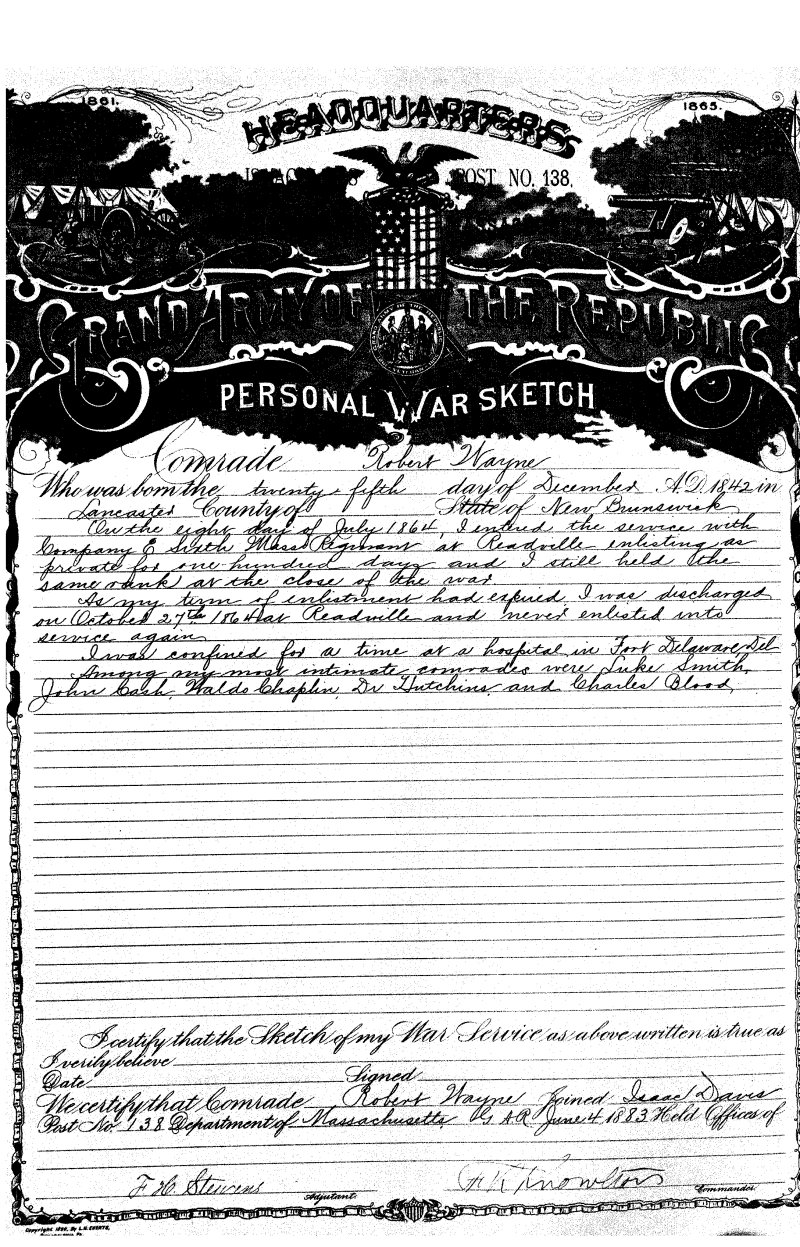 1861.
1865.
HEADQUARTERS
POST NO. 138,
GRAND ARMY OF THE REPUBLIC
PERSONAL WAR SKETCH
Comrade Robert Wayne
Who was born the twenty fifth day of December A.D. 1842 in
Lancaster County of State of New Brunswick
On the eight day of July 1864, I entered the service with
Company E Sixth Mass Regiment at Readville enlisting as
private for one hundred days and I still held the
same rank at the close of the war
As my term of enlistment had expired I was discharged
on October 27th 1864 at Readville and never enlisted into
service again
I was confined for a time at a hospital in Fort Delaware, Del
Among my most intimate comrades were Luke Smith,
John Cash, Waldo Chaplin, Dr Hutchins, and Charles Blood,
I certify that the Sketch of my War Service as above written is true as
I verily believe
Date Signed
We certify that Comrade Robert Wayne Joined Isaac Davis
Post No. 138 Department of Massachusetts G.A.R June 4 1883 Held Offices of
F. H. Stevens Adjutant. Knowlton Commander
Copyright 1890, By L.H. EVERTS,